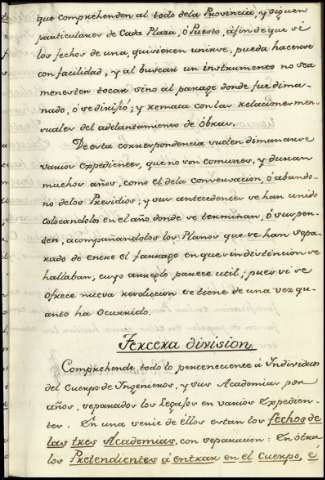 que comprehenden al todo dela Provincia, y siguen
particulares de Cada Plaza, ó Puesto, afin de que si
los fechos de una, quisieren unirse, pueda hacerse
con facilidad, y al buscar un instrumento no sea
menester tocar sino al parage donde fue dima-
nado, ó se dirijió; y remata con las relaciones men-
suales del adelantamiento de óbras.
De esta correspondencia suelen dimanarse
varios Expedientes, que no son comunes, y duran
muchos años, como el dela conservacion, ó abando-
no delos Presidios; y sus antecedentes se han unido
colocandolos en el año donde se terminan, ó suspen-
den, acompañandolos los Planos que se han sepa-
rado de entre el farrago en que indistintamente se
hallaban, cuyo arreglo parece util; pues si se
ofrece nueva resolucion se tiene de una vez qu-
anto ha ocurrido.
Tercera division
Comprehende todo lo perteneciente á Individuos
del Cuerpo de Ingenieros, y sus Academias por
años, separados los Legajos en varios Expedien-
tes. En una serie de éllos estan los fechos de
las tres Academias, con separacion: En ótra
los Pretendientes á entrar en el Cuerpo, é